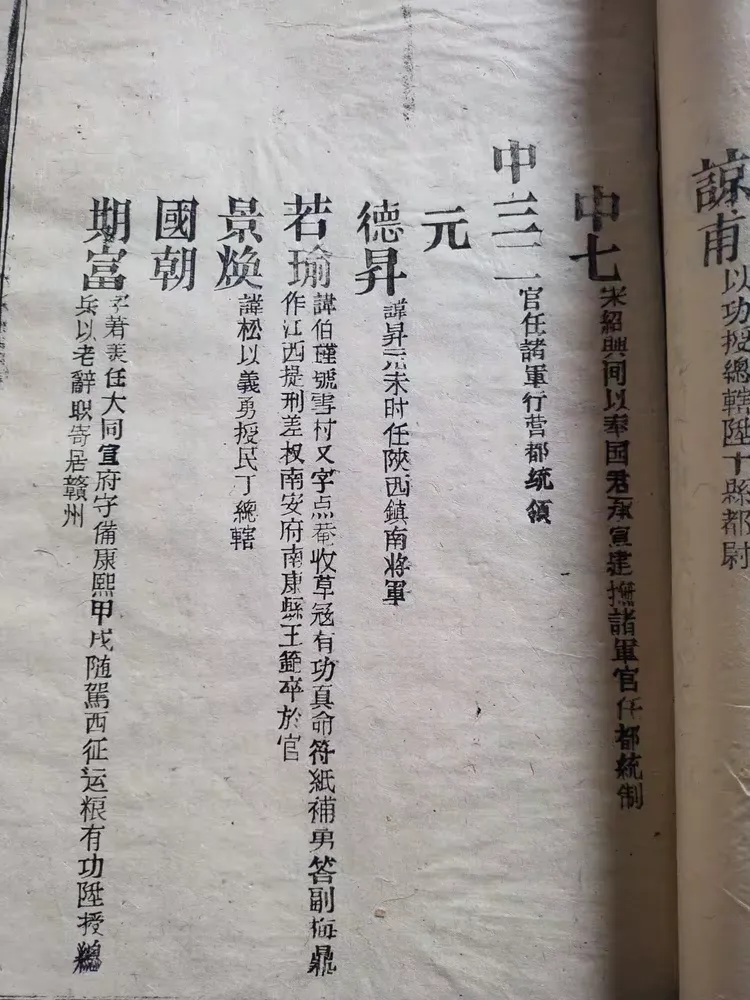 諒甫 以功授總轄陞十縣都尉
中七 宋紹興间以奉国君承宣建撫諸軍官任都統制
中三二 官任諸軍行营都统领
元
德昇 諱昇元末时任陝西鎮南将軍
若瑜 諱伯瑾號雪村又字点菴收草冦有功真命符紙補勇答副梅鼎
作江西提刑差权南安府南康縣王範卒於官
景焕 諱松以義勇授民丁總轄
國朝
期富 字若美任大同宣府守備康熙甲戌随駕西征运粮有功陞授總
兵以老辭职寄居贛州